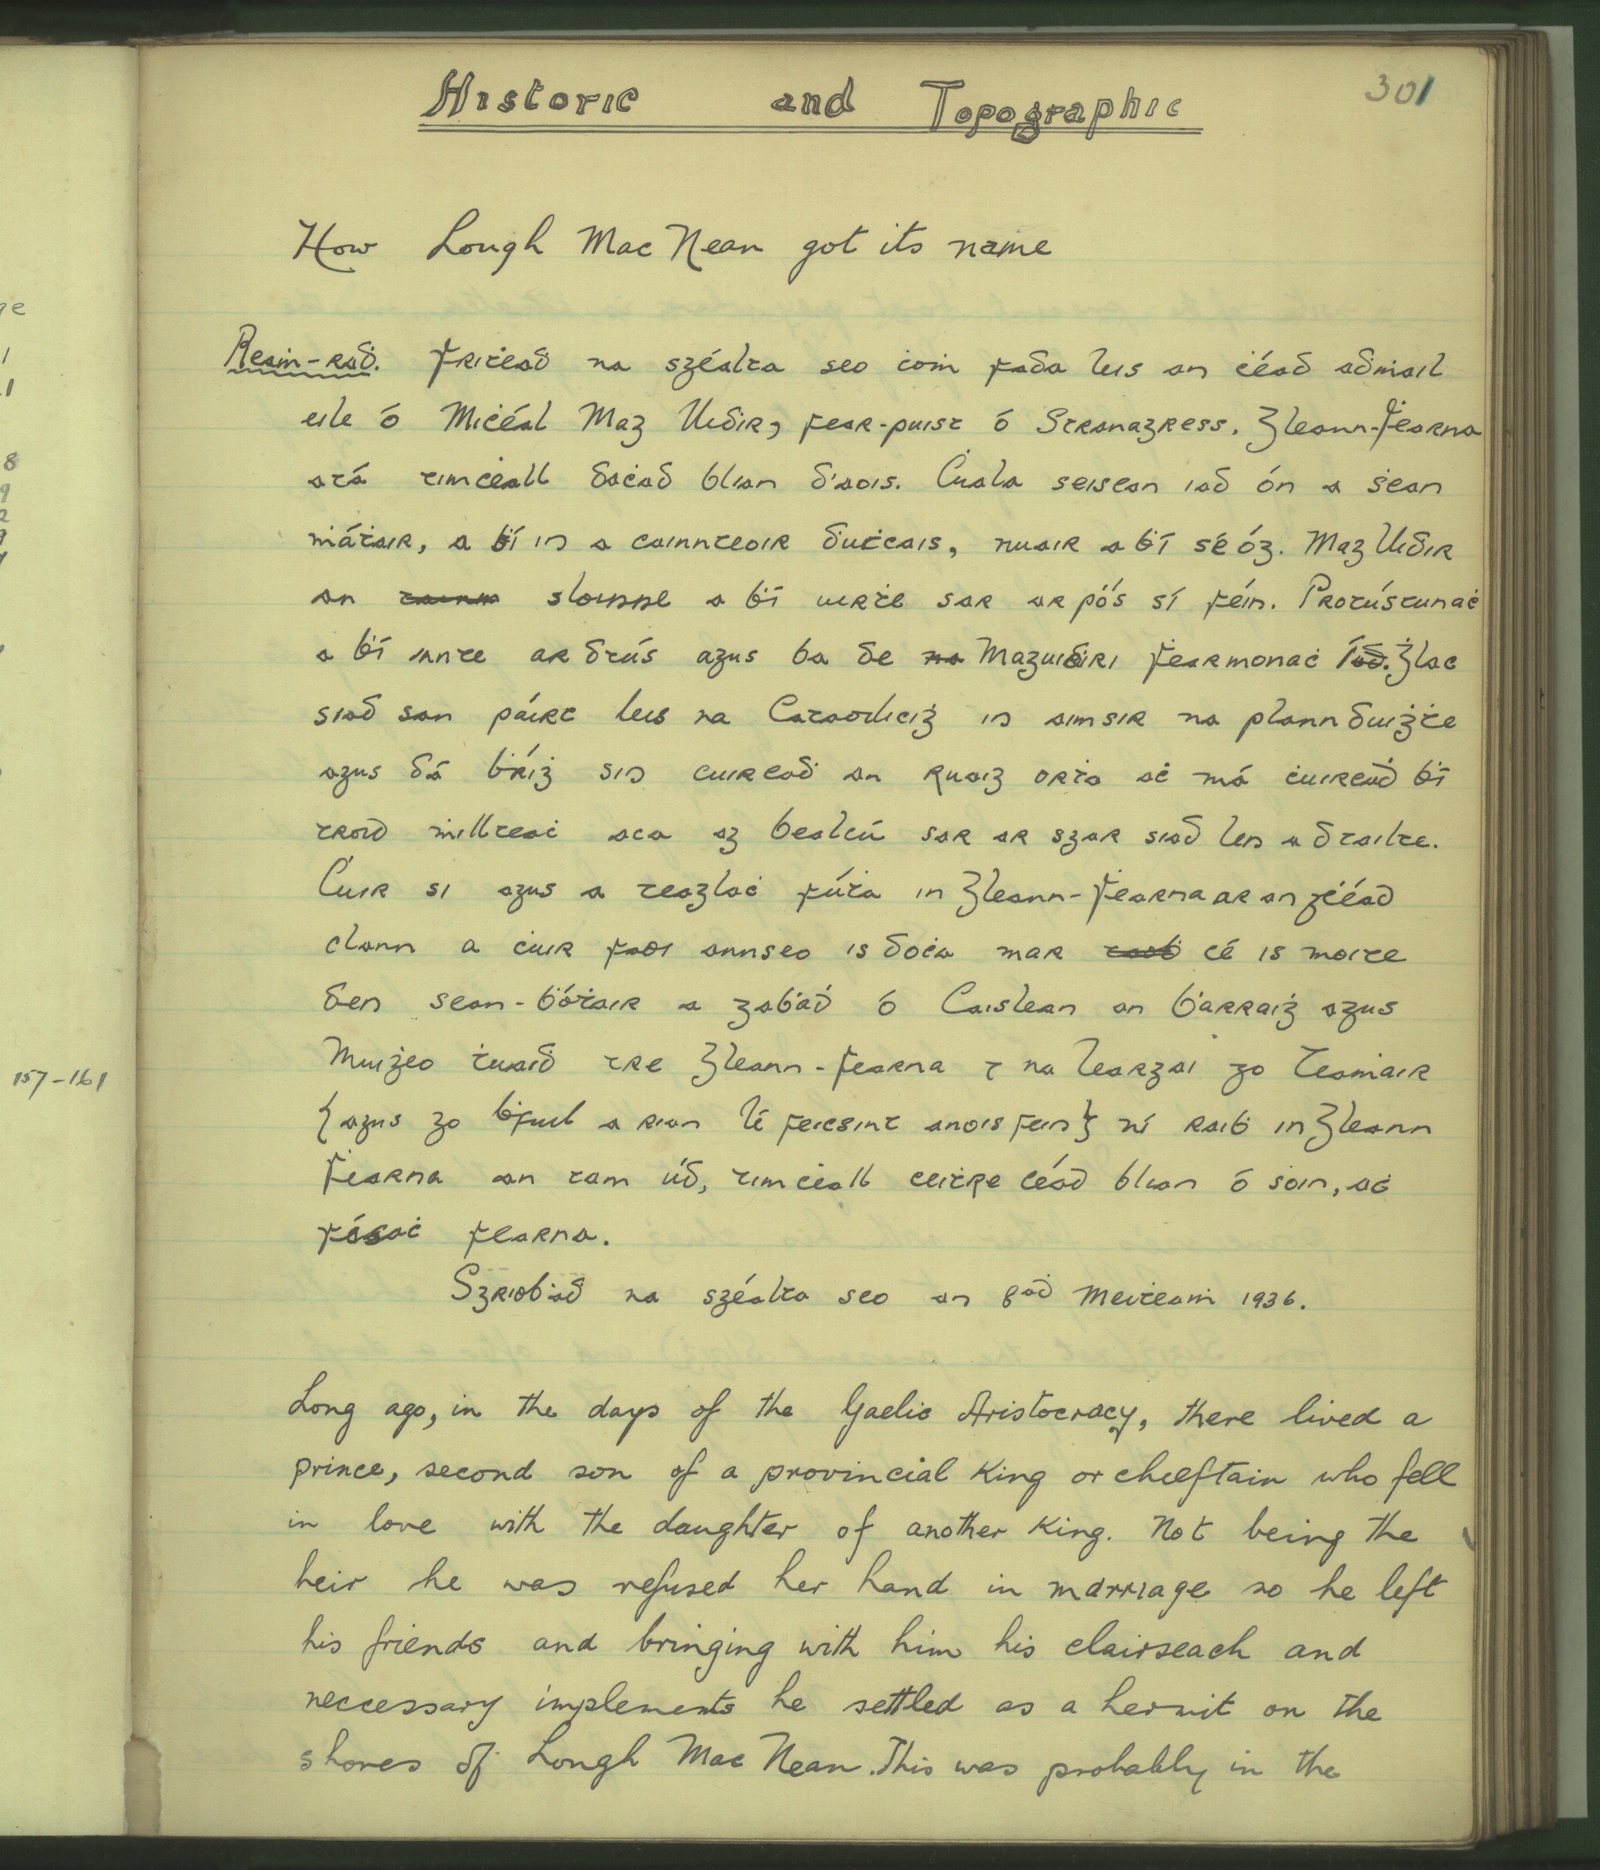 301
Historic and Topographic
How Lough Mac Nean got its name
Reaṁ-raḋ. Friṫeaḋ na sgéalta seo ċoṁ fada leis an ċéad adṁail
eile ó Miċéal Mag Uidir, fear-puist ó Stranagress. Gleann-Ḟearna
atá timċeall daċad blian d'aois. Ċuala seisean iad ón a ṡean
ṁáṫair, a ḃí in a cainnteoir dutċais, nuair a ḃí sé óg. Mag Uidir
an sloinne a ḃí uirṫe sar ar pós sí féin. Protústunaċ
a ḃí innte ar dtús agus ba de Maguidiri Fearmonaċ Ġlac
siad san páirt leis na Cataoiliciġ in aimsir na plannduiġṫe
agus dá ḃríġ sin cuireaḋ an ruaig orṫa aċ má ċuireaḋ ḃí
troid ṁillteaċ aca ag Bealcú sar ar sgar siad len a dtailte.
Ċuir si agus a teaglaċ fúṫa in Gleann-Ḟearna ar an gċéad
clann a ċuir faoi annseo is doċa mar cé is moite
den sean-ḃóṫair a gaḃaḋ ó Caislean an Ḃarraiġ agus
Muiġeo ṫuaiḋ tre Gleann-Fearna ⁊ na Leargai go Teaṁair
{agus go ḃfuil a rian lé feicsint anois fein} ní raiḃ in Gleann
Ḟearna an tam úd, timċeall ceiṫre céad blian ó ṡoin, aċ
fásaċ fearna.
Sgrioḃaḋ na sgéalta seo an 8aḋ Meiṫeaṁ 1936.
Long ago, in the days of the Gaelic Aristocracy, there lived a
prince, second son of a provincial King or cheeftain who fell
in love with the daughter of another King. Not being the
heir he was refused her hand in marriage so he left
his friends and bringing with him his clairseach and
neccessary implements he settled as a hermit on the
shores of Lough Mac Nean. This was probably in the
157-161